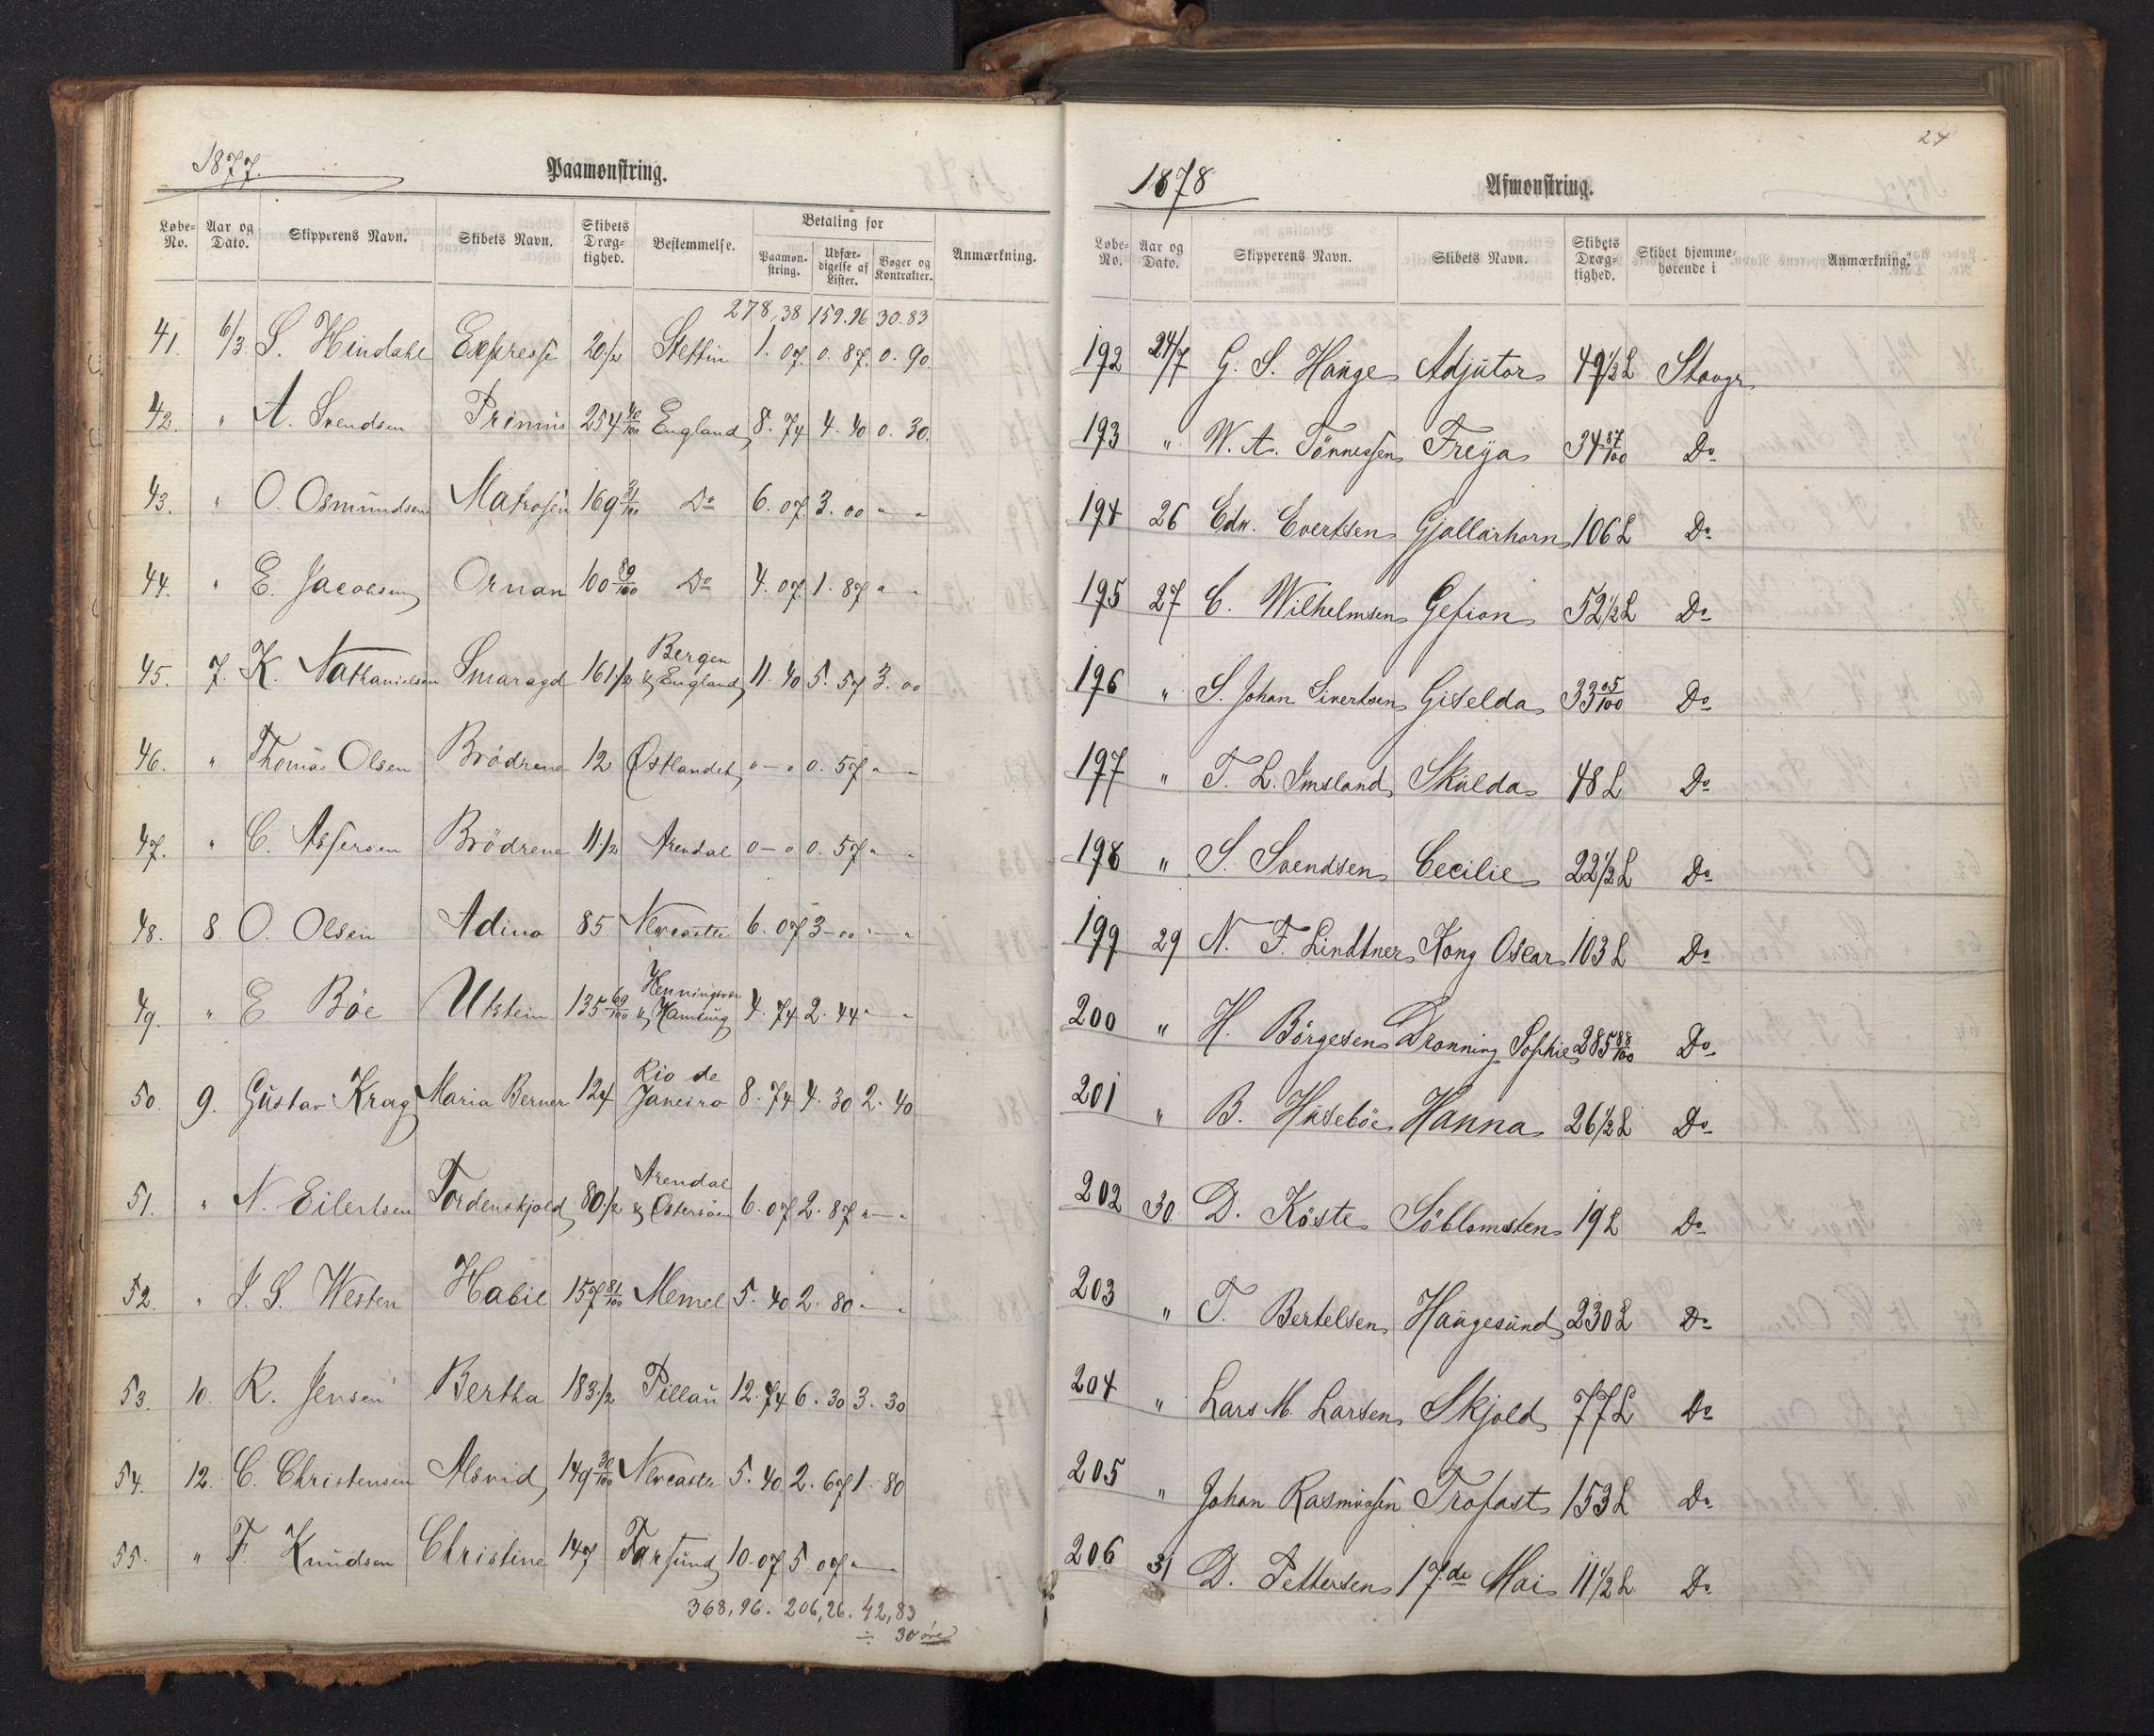 1877.
Paamønstring.
Løbe-No. Aar og Dato. Skipperens Navn. Skibets Navn. Skibets Dræg-tighed. Bestemmelse. Betaling for Paamøn-string. Udfær-digelse af Lister. Bøger og Kontrakter. Anmærkning.
278,38 159.96 30.83
41. 6/3. S. Hindahl Express 20 1/2 Stettin 1. 07. 0. 87. 0. 90.
42. " A. Svendsen Primus 254 40/100 England 8. 74 4. 40 0. 30.
43. " O. Osmundsen Matrosen 169 31/100 Do 6. 07. 3. 00 " "
44. " E. Jacobsen Ornan 100 89/100 Do 4. 07. 1. 87 " "
45. 7. K. Nathanielsen Smaragd 161 1/2 Bergen & England 11. 40 5. 57 3. 00
46. " Thomas Olsen Brödrene 12 Østlandet " — " 0. 57 " — "
47. " C. Assersen Brödrene 11 1/2 Arendal 0 — 0 0. 57 " — "
48. 8 O. Olsen Adino 85 Newcastle 6. 07 3 — 00 " — "
49. " E Böe Utstein 135 69/100 Henningsvær & Hamburg 4. 74 2. 44 " — "
50. 9. Gustav Krag Maria Berner 124 Rio de Janeiro 8. 74 4. 30 2. 40
51. " N. Eilertsen Tordenskjold 80 1/2 Arendal & Östersöen 6. 07 2. 87 " — "
52. " J. S. Westen Habil 157 81/100 Memel 5. 40 2. 80 " — "
53. 10. R. Jensen Bertha 183 1/2 Pillau 12. 74 6. 30 3. 30
54. 12. C. Christensen Alsvid 149 30/100 Newcastle 5. 40 2. 67 1. 80
55. " F. Knudsen Christine 147 Farsund 10. 07 5. 07 " —
368,96. 206,26. 42,83
÷ 30 øre
24
1878
Afmønstring.
Løbe-No. Aar og Dato. Skipperens Navn. Skibets Navn. Skibets Dræg-tighed. Skibet hjemme-hørende i Anmærkning.
192 24/7 G. S. Hauge Adjutor 49 1/2 L Stavgr
193 " W. A. Tönnessen Freya 34 87/100 Do
194 26 Edw. Evertsen Gjallarhorn 106 L Do
195 27 C. Wilhelmsen Gefion 52 1/2 L Do
196 " S. Johan Sivertsen Giselda 33 05/100 Do
197 " T. L. Imsland Skulda 48 L Do
198 " S. Svendsen Cecilie 22 1/2 L Do
199 29 N. F. Lindtner Kong Oscar 103 L Do
200 " H. Börgesen Dronning Sophie 285 88/100 Do
201 " B. Huseböe Hanna 26 1/2 L Do
202 30 D. Köste Söblomsten 19 L Do
203 " T. Bertelsen Haugesund 230 L Do
204 " Lars M. Larsen Skjold 77 L Do
205 " Johan Rasmussen Trofast 153 L Do
206 31 D. Pettersen 17de Mai 11 1/2 L Do